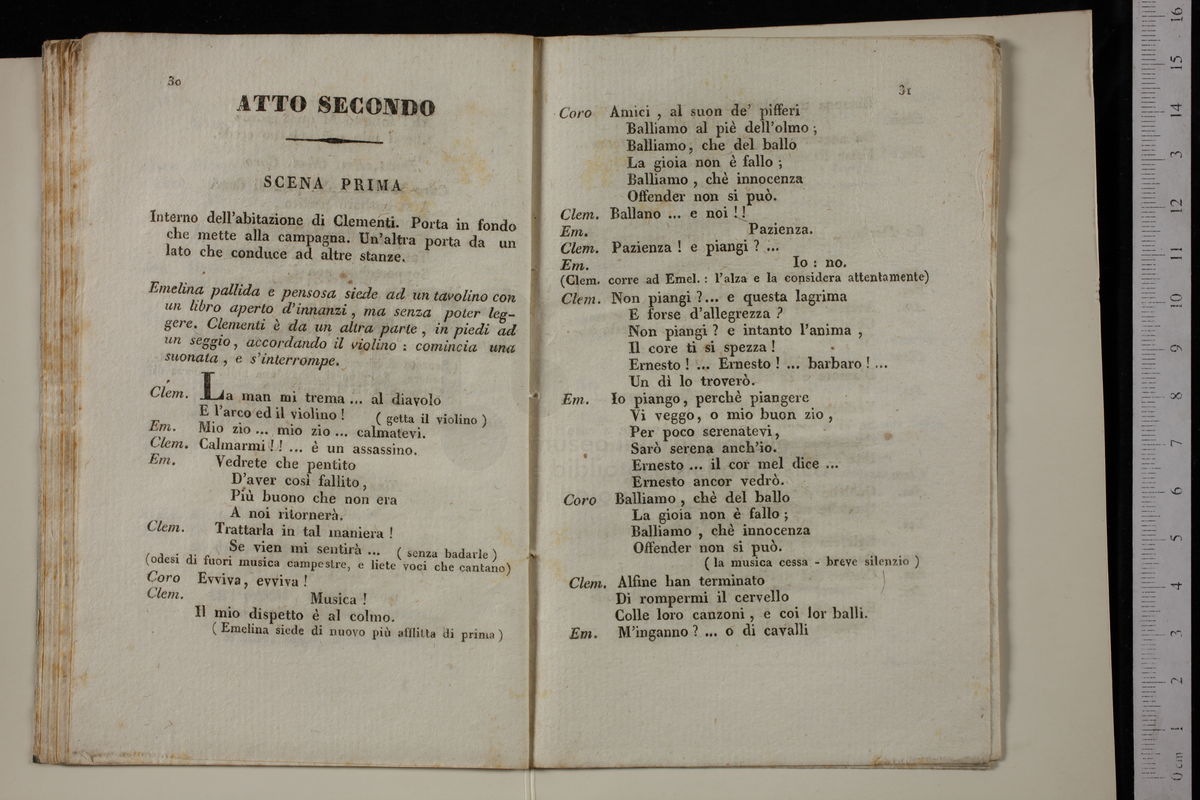 30
ATTO SECONDO
SCENA PRIMA
Interno dell'abitazione di Clementi. Porta in fondo
che mette alla campagna. Un'altra porta da un
lato che conduce ad altre stanze.
Emelina pallida e pensosa siede ad un tavolino con
un libro aperto d'innanzi, ma senza poter leg-
gere. Clementi è da un altra parte, in piedi ad
un seggio, accordando il violino : comincia una
suonata, e s'interrompe.
Clem. La man mi trema ... al diavolo
E l'arco ed il violino ! ( getta il violino )
Em. Mio zio ... mio zio ... calmatevi.
Clem. Calmarmi !! ... è un assassino.
Em. Vedrete che pentito
D'aver così fallito,
Più buono che non era
A noi ritornerà.
Clem. Trattarla in tal maniera !
Se vien mi sentirà ... ( senza badarle )
(odesi di fuori musica campestre, e liete voci che cantano)
Coro Evviva, evviva !
Clem. Musica !
Il mio dispetto è al colmo.
( Emelina siede di nuovo più afflitta di prima )
31
Coro Amici , al suon de' pifferi
Balliamo al piè dell'olmo ;
Balliamo, che del ballo
La gioia non è fallo ;
Balliamo , chè innocenza
Offender non si può.
Clem. Ballano ... e noi !!
Em. Pazienza.
Clem. Pazienza ! e piangi ? ...
Em. Io : no.
(Clem. corre ad Emel. : l'alza e la considera attentamente)
Clem. Non piangi ?... e questa lagrima
E forse d'allegrezza ?
Non piangi ? e intanto l'anima ,
Il core ti si spezza !
Ernesto ! ... Ernesto ! ... barbaro ! ...
Un dì lo troverò.
Em. Io piango, perchè piangere
Vi veggo, o mio buon zio ,
Per poco serenatevi,
Sarò serena anch'io.
Ernesto ... il cor mel dice ...
Ernesto ancor vedrò.
Coro Balliamo , chè del ballo
La gioia non è fallo ;
Balliamo , chè innocenza
Offender non si può.
( la musica cessa - breve silenzio )
Clem. Alfine han terminato
Di rompermi il cervello
Colle loro canzoni , e coi lor balli.
Em. M'inganno ? ... o di cavalli
0 cm 1 2 3 4 5 6 7 8 9 10 11 12 13 14 15 16